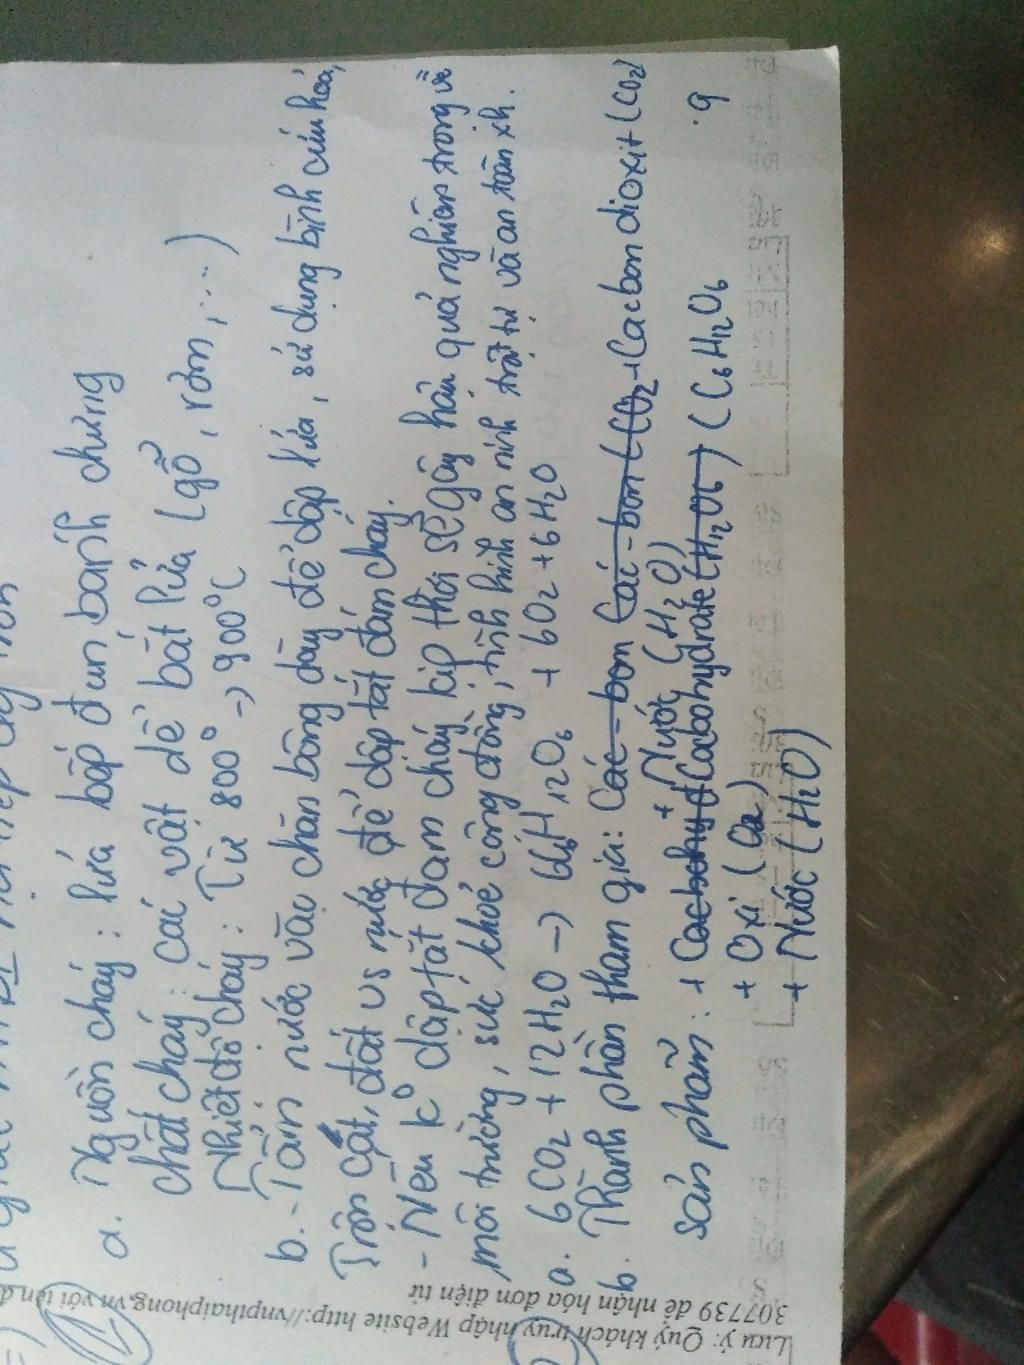 a. Nguồn cháy: lửa bếp đun bánh chưng
chất cháy: các vật dễ bắt lửa (gỗ, rơm,....)
Nhiệt độ cháy: Từ 800° -> 900°C
b. - Tẩm nước vào chăn bông dày để dập lửa, sử dụng bình cứu hoả,
Trộn cát, đất vs nước để dập tắt đám cháy.
- Nếu k° dập tắt đam cháy kịp thời sẽ gây hậu quả nghiêm trọng về
môi trường, sức khoẻ cộng đồng, tình hình an ninh trật tự và an toàn xh.
a. 6CO2 + 12H2O -> C6H12O6 + 6O2 + 6H2O
b. Thành phần tham gia: Cacbon dioxit (CO2)
+ Nước (H2O)
sản phẩm: + Cacbohydrate (C6H12O6
+ Oxi (O2)
+ Nước (H2O)
Lưu ý: Quý khách truy nhập Website http://vnpthaiphong.vn với tên
307739 để nhận hóa đơn điện tử